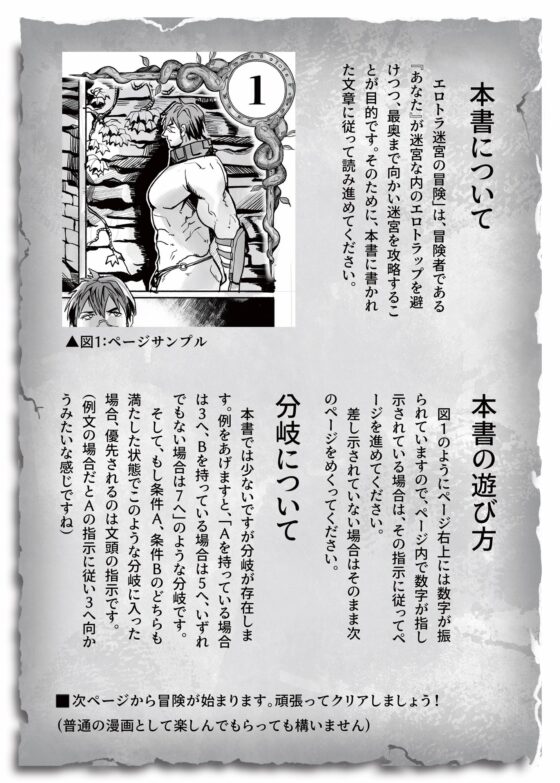 本書について
エロトラ迷宮の冒険」は、冒険者である
『あなた』が迷宮な内のエロトラップを避
けつつ、最奥まで向かい迷宮を攻略するこ
とが目的です。そのために、本書に書かれ
た文章に従って読み進めてください。
1
▲図1:ページサンプル
本書の遊び方
図1のようにページ右上には数字が振
られていますので、ページ内で数字が指し
示されている場合は、その指示に従ってペ
ージを進めてください。
差し示されていない場合はそのまま次
のページをめくってください。
分岐について
本書では少ないですが分岐が存在しま
す。例をあげますと、「Aを持っている場合
は3へ、Bを持っている場合は5へ、いずれ
でもない場合は7へ」のような分岐です。
そして、もし条件A、条件Bのどちらも
満たした状態でこのような分岐に入った
場合、優先されるのは文頭の指示です。
(例文の場合だとAの指示に従い3へ向か
うみたいな感じですね)
■次ページから冒険が始まります。頑張ってクリアしましょう!
(普通の漫画として楽しんでもらっても構いません)